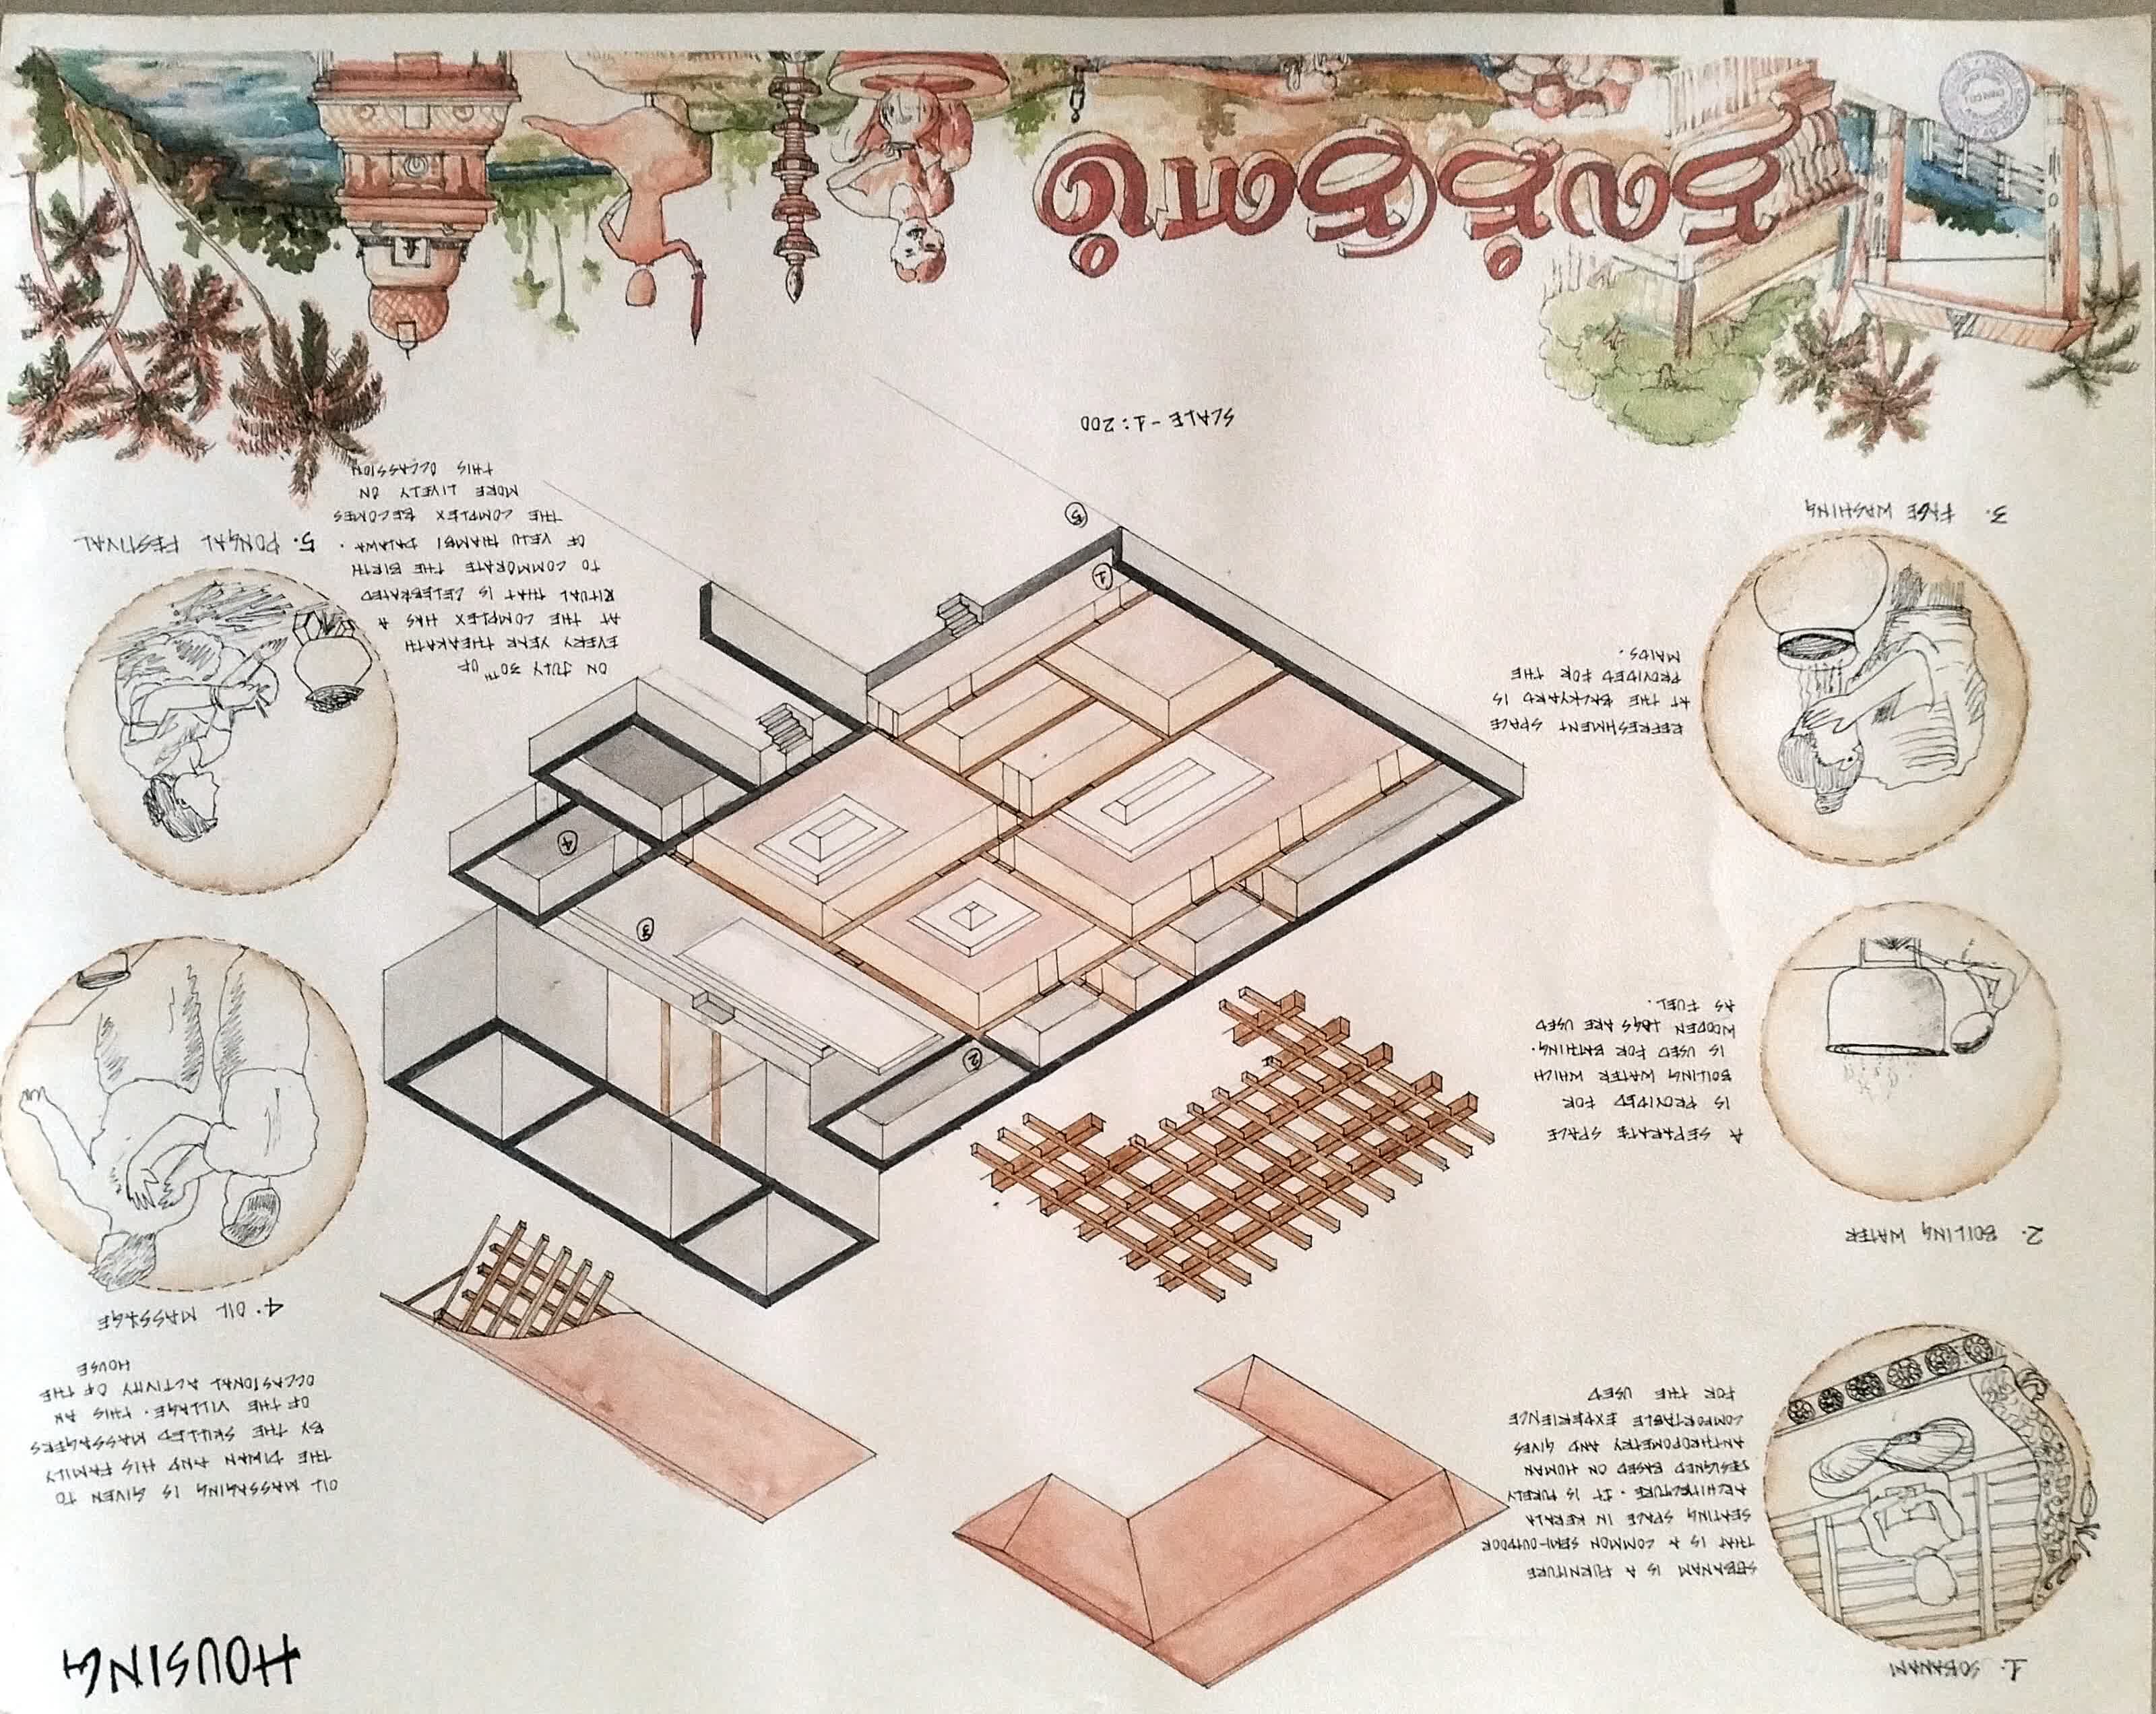 HOUSING
1. SOBANAM
SOBANAM IS A FURNITURE
THAT IS A COMMON SEMI-OUTDOOR
SEATING SPACE IN KERALA
ARCHITECTURE. IT IS PURELY
DESIGNED BASED ON HUMAN
ANTHROPOMETRY AND GIVES
COMFORTABLE EXPERIENCE
FOR THE USED
2. BOILING WATER
A SEPARATE SPACE
IS PROVIDED FOR
BOILING WATER WHICH
IS USED FOR BATHING.
WOODEN LOGS ARE USED
AS FUEL.
REFRESHMENT SPACE
AT THE BACKYARD IS
PROVIDED FOR THE
MAIDS.
3. FACE WASHING
2
3
4
1
5
SCALE - 1:200
OIL MASSAGING IS GIVEN TO
THE DIWAN AND HIS FAMILY
BY THE SKILLED MASSAGERS
OF THE VILLAGE. THIS AN
OCCASIONAL ACTIVITY OF THE
HOUSE
4. OIL MASSAGE
ON JULY 30TH OF
EVERY YEAR THEAKATH
AT THE COMPLEX HAS A
RITUAL THAT IS CELEBRATED
TO COMMORATE THE BIRTH
OF VELU THAMBI DALAWA.
THE COMPLEX BECOMES
MORE LIVELY ON
THIS OCCASSION
5. PONGAL FESTIVAL
தலக்குளம்